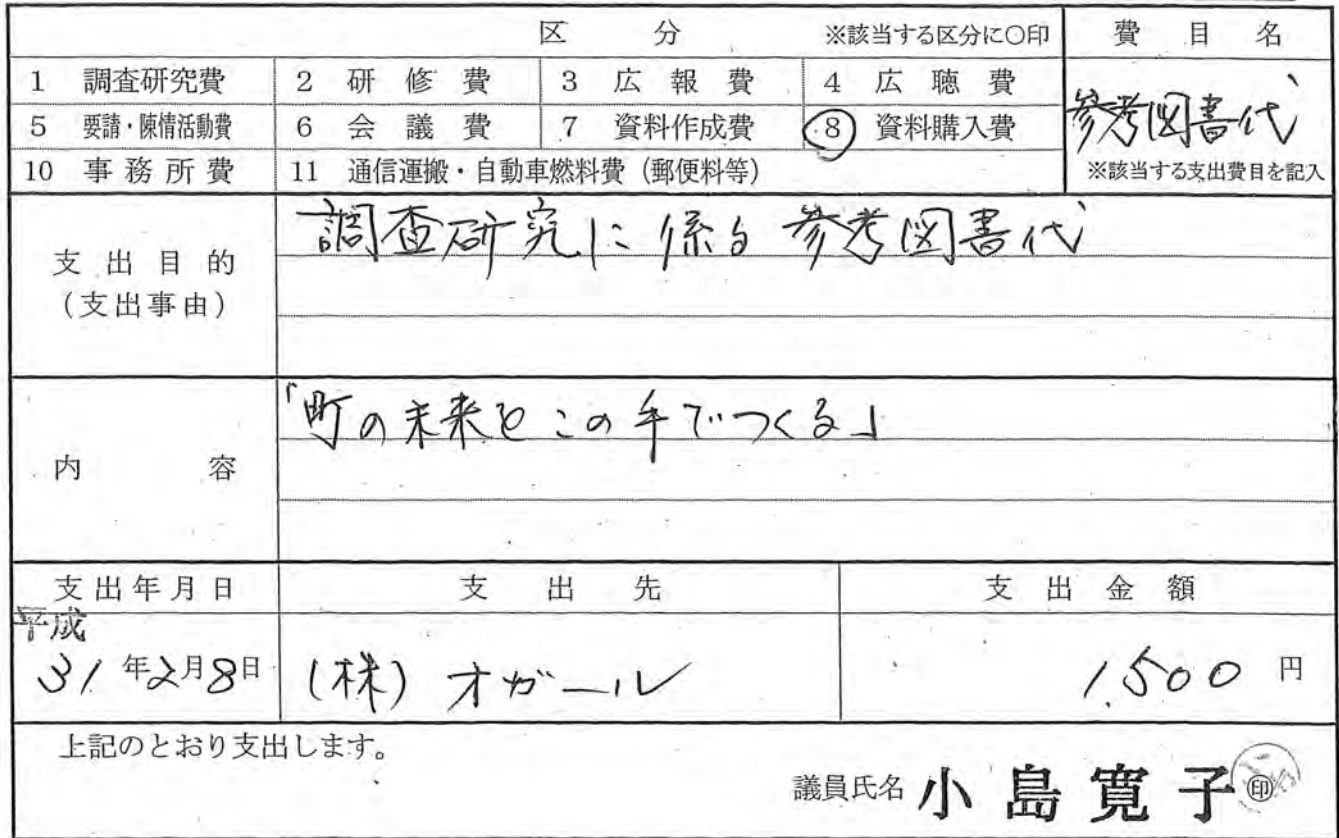 区 分 ※該当する区分に○印 費 目 名
1 調査研究費 2 研 修 費 3 広 報 費 4 広 聴 費
参考図書代
5 要請・陳情活動費 6 会 議 費 7 資料作成費 8 資料購入費
10 事 務 所 費 11 通信運搬・自動車燃料費（郵便料等） ※該当する支出費目を記入
支 出 目 的
（支出事由）
調査研究に係る参考図書代
内 容
「町の未来をこの手でつくる」
支出年月日 支 出 先 支 出 金 額
平成
31年2月8日 (株) オガール 1,500 円
上記のとおり支出します。
議員氏名 小島寛子 印